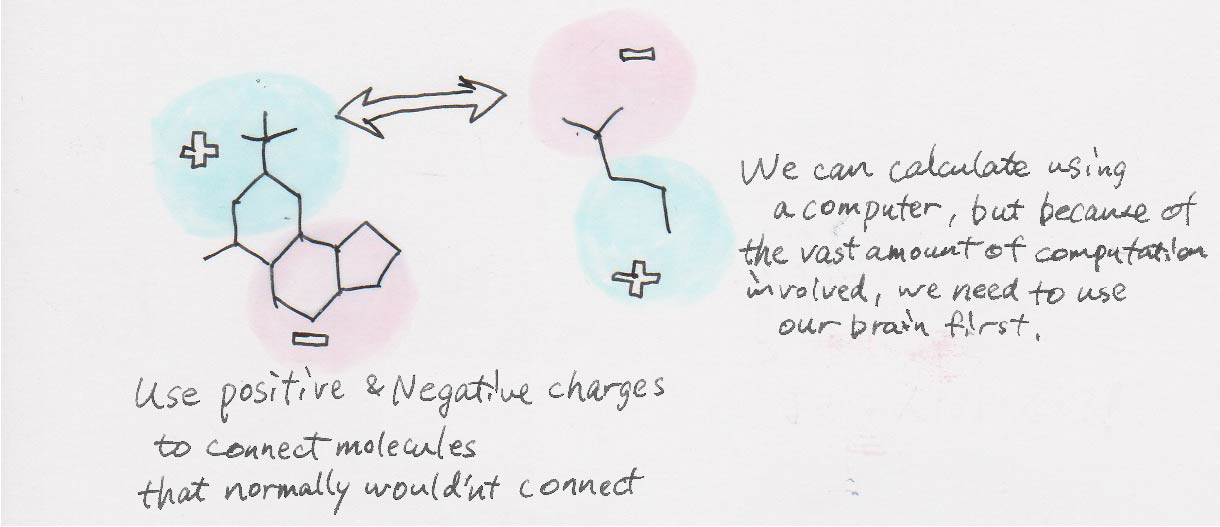 We can calculate using
a computer, but because of
the vast amount of computation
involved, we need to use
our brain first.
Use positive & Negative charges
to connect molecules
that normally would'nt connect